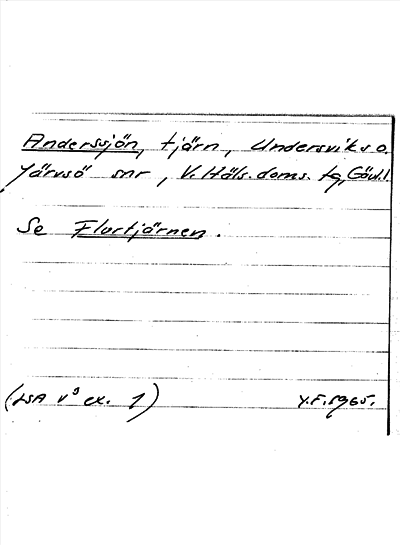 Anderssjön, tjärn, Undersviks o.
Järvsö snr, V. Häls. doms. fg, Gävl.l
Se Flurtjärnen.
(LSA V⁹ ex. 1) Y.F. 1965.